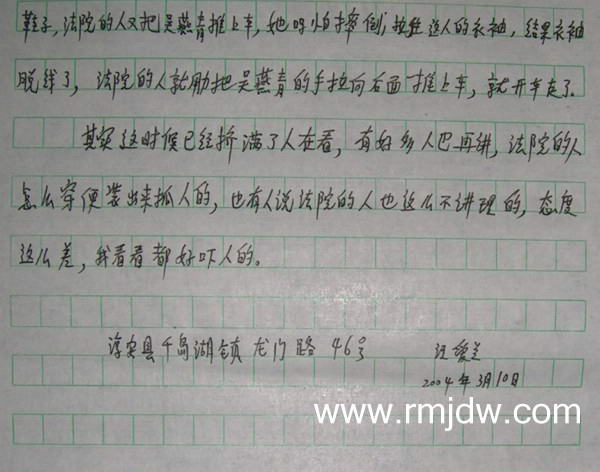 鞋子,法院的人又把吴燕青推上车,她呀怕摔倒,拉住这人的衣袖,结果衣袖
脱线了,法院的人就把吴燕青的手拉向右面推上车,就开车走了。
其实这时候已经挤满了人在看,有好多人巴再讲,法院的人
怎么穿便装出来抓人的,也有人说法院的人也这么不讲理的,态度
这么差,我看看都好吓人的。
淳安县千岛湖镇龙门路46号 汪爱兰
2004年3月10日
www.rmjdw.com